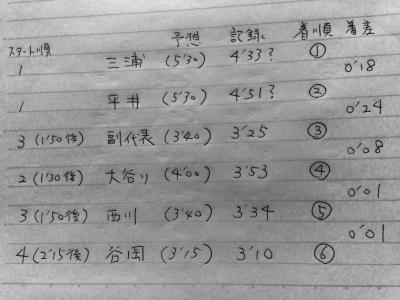 スタート順 予想 記録 着順 着差
1 三浦 (5'30) 4'33? ①
0'18
1 平井 (5'30) 4'51? ②
0'24
3 (1'50後) 副代表 (3'40) 3'25 ③
0'08
2 (1'30後) 大谷リ (4'00) 3'53 ④
0'01
3 (1'50後) 西川 (3'40) 3'34 ⑤
0'01
4 (2'15後) 谷岡 (3'15) 3'10 ⑥